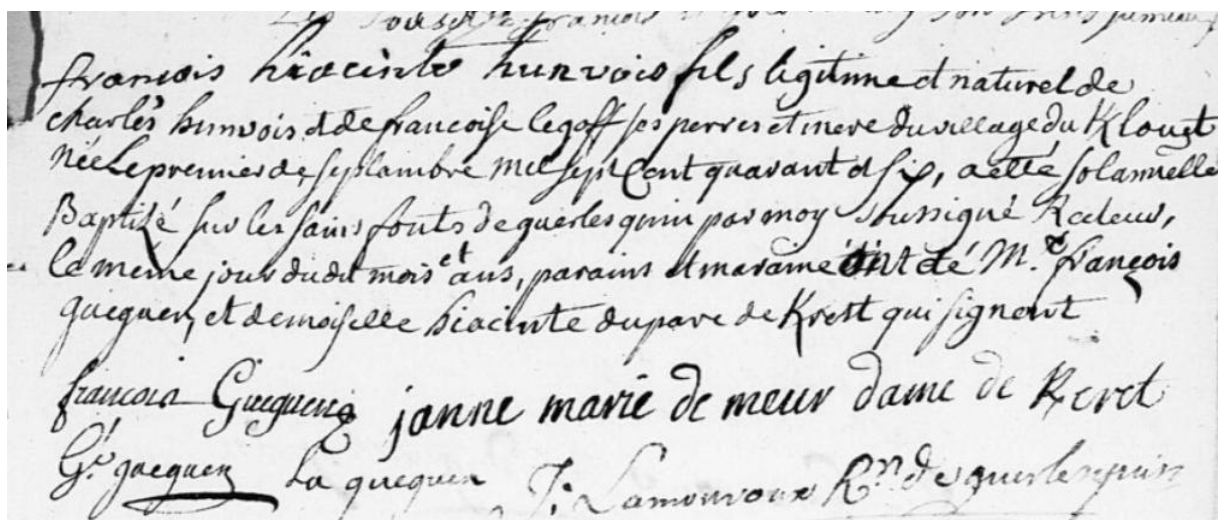 françois hiacinte hunvois fils legitime et naturel de
charles hunvois et de francoise legoff ses perres et mere du village du Klouet
née le premier de septambre mil sept cent quarant et six, a etté solannelle
Baptizé sur les sains fonts de guerlesquin par moy soussigné Recteur,
le meme jour dudit mois et ans, parains et maraine ont été Mr. françois
gueguen, et demoiselle hiacinte duparc de Krest qui signent
françois Gueguen janne marie de meur dame de Keret
Ge. gueguen La gueguen J: Lamouroux Rr. de guerlesquin